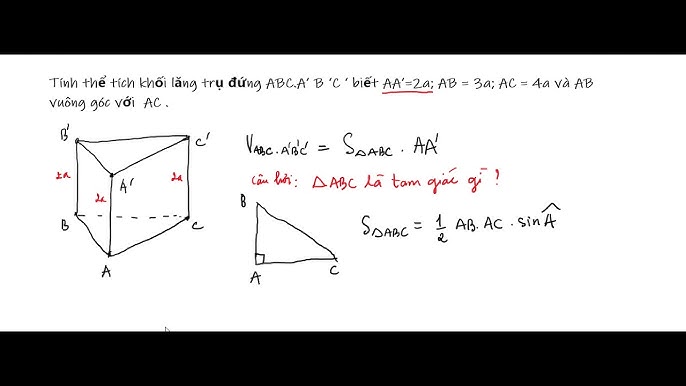 Tính thể tích khối lăng trụ đứng ABC.A' B 'C ' biết AA'=2a; AB = 3a; AC = 4a và AB
vuông góc với AC .
B'
C'
V ABC.A'B'C' = S△ABC . AA'
2a
2a
A'
2a
Câu hỏi: △ABC là tam giác gì ?
B
B
C
S△ABC = 1/2 AB.AC . sin Â
A
A
C